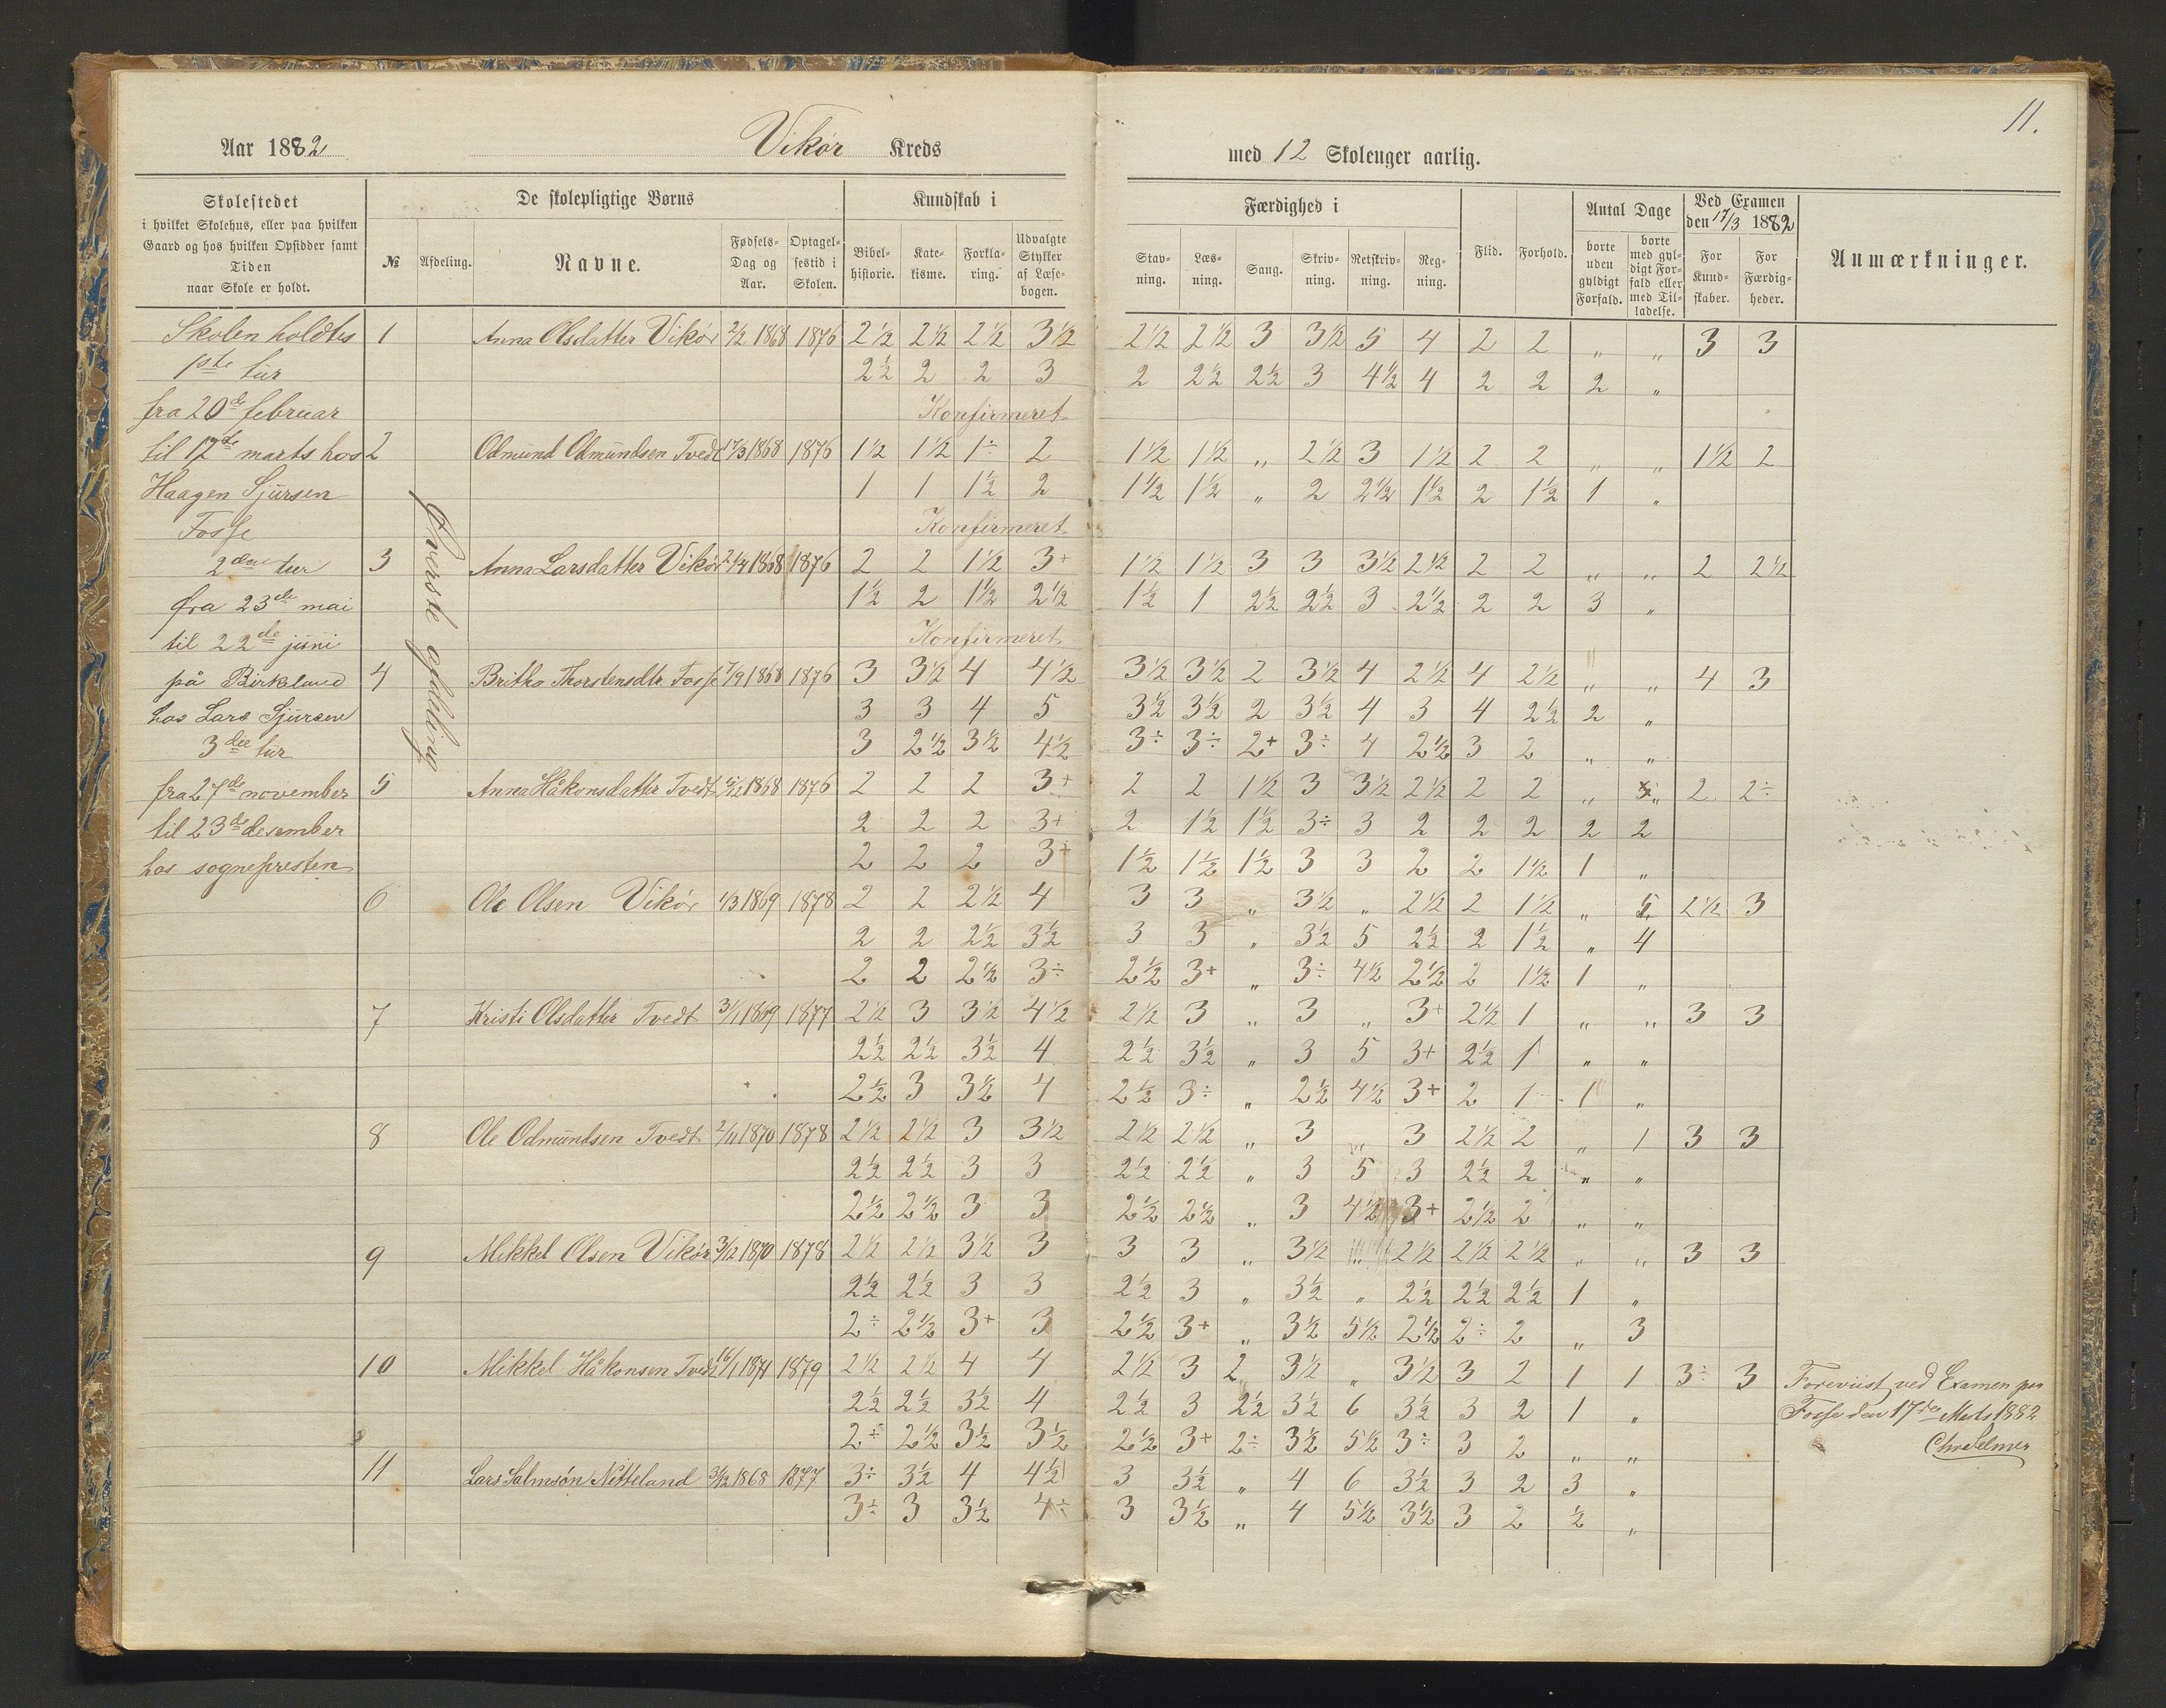 11.
Aar 1882 Vikør Kreds
med 12 Skoleuger aarlig.
Skolestedet
i hvilket Skolehus, eller paa hvilken
Gaard og hos hvilken Opsidder samt
Tiden
naar Skole er holdt.
De skolepligtige Børns
№ Afdeling. Navne. Fødsels-Dag og Aar. Optagelsestid i Skolen.
Kundskab i
Bibelhistorie. Katekisme. Forklaring. Udvalgte Stykker af Læsebogen.
Færdighed i
Stavning. Læsning. Sang. Skrivning. Retskrivning. Regning.
Flid. Forhold.
Antal Dage
borte uden gyldigt Forfald. borte med gyldigt Forfald eller med Tilladelse.
Ved Examen
den 17/3 1882
For Kundskaber. For Færdigheder.
Anmærkninger.
Skolen holdtes
1ste tur
fra 20de februar
til 17de marts hos
Haagen Sjursen
Fosse
2den tur
fra 23de mai
til 22de juni
på Birkeland
hos Lars Sjursen
3die tur
fra 27de november
til 23de desember
hos sognepresten
Øverste afdeling
1 Anna Olsdatter Vikør 2/2 1868 1876 2½ 2½ 2½ 3½ 2½ 2½ 3 3½ 5 4 2 2 „ „ 3 3
2½ 2 2 3 2 2½ 2½ 3 4½ 4 2 2 2 „
Konfirmeret
2 Odmund Odmundsen Tvedt 17/3 1868 1876 1½ 1½ 1÷ 2 1½ 1½ „ 2½ 3 1½ 2 2 „ „ 1½ 2
1 1 1½ 2 1½ 1½ „ 2 2½ 1½ 2 1½ 1 „
Konfirmeret
3 Anna Larsdatter Vikør 2/4 1868 1876 2 2 1½ 3+ 1½ 1½ 3 3 3½ 2½ 2 2 „ „ 2 2½
1½ 2 1½ 2½ 1½ 1 2½ 2½ 3 2½ 2 2 3 „
Konfirmeret
4 Britha Thorstensdtr Fosse 7/9 1868 1876 3 3½ 4 4½ 3½ 3½ 2 3½ 4 2½ 4 2½ „ „ 4 3
3 3 4 5 3½ 3½ 2 3½ 4 3 4 2½ 2 „
3 2½ 3½ 4½ 3÷ 3÷ 2+ 3÷ 4 2½ 3 2 „ „
5 Anna Håkonsdatter Tvedt 1868 1876 2 2 2 3+ 2 2 1½ 3 3½ 2½ 2 2 „ „ 2 2÷
2 2 2 3+ 2 1½ 1½ 3÷ 3 2 2 2 2 2
2 2 2 3+ 1½ 1½ 1½ 3 3 2 2 1½ 1 „
6 Ole Olsen Vikør 1/3 1869 1878 2 2 2½ 4 3 3 „ 3½ „ 2½ 2 1½ „ 5 2½ 3
2 2 2½ 3½ 3 3 „ 3½ 5 2½ 2 1½ „ 4
2 2 2½ 3÷ 2½ 3+ „ 3÷ 4½ 2½ 2 1½ 1 „
7 Kristi Olsdatter Tvedt 31/1 1869 1877 2½ 3 3½ 4½ 2½ 3 „ 3 „ 3+ 2½ 1 „ „ 3 3
2½ 2½ 3½ 4 2½ 3½ „ 3 5 3+ 2½ 1 „ „
2½ 3 3½ 4 2½ 3÷ „ 2½ 4½ 3+ 2 1 1 „
8 Ole Odmundsen Tvedt 2/11 1870 1878 2½ 2½ 3 3½ 2½ 2½ „ 3 „ 3 2½ 2 „ 1 3 3
2½ 2½ 3 3 2½ 2½ „ 3 5 3 2½ 2 „ „
2½ 2½ 3 3 2½ 2½ „ 3 4½ 3+ 2½ 2 „ „
9 Mikkel Olsen Vikør 3/12 1870 1878 2½ 2½ 3½ 3 3 3 „ 3½ „ 2½ 2½ 2½ „ „ 3 3
2½ 2½ 3 3 2½ 3 „ 3½ „ 2½ 2½ 2½ 1 „
2÷ 2½ 3+ 3 2½ 3+ „ 3½ 5½ 2½ 2÷ 2 „ 3
10 Mikkel Håkonsen Tvedt 16/1 1871 1879 2½ 2½ 4 4 2½ 3 2 3½ „ 3½ 3 2 1 1 3÷ 3
2½ 2½ 3½ 4 2½ 3 2½ 3½ 6 3½ 3 2 1 „
2÷ 2½ 3½ 3½ 2½ 3+ 2÷ 3½ 5½ 3÷ 3 2 „ „
11 Lars Salmsøn Netteland 3/12 1868 1877 3÷ 3½ 4 4½ 3 3½ „ 4 6 3½ 3 2 3 „
3÷ 3 3½ 4÷ 3 3½ „ 4 5½ 3½ 3 2 ½ „
Foreviist ved Examen paa
Fosse den 17de Marts 1882
Chr Selmer